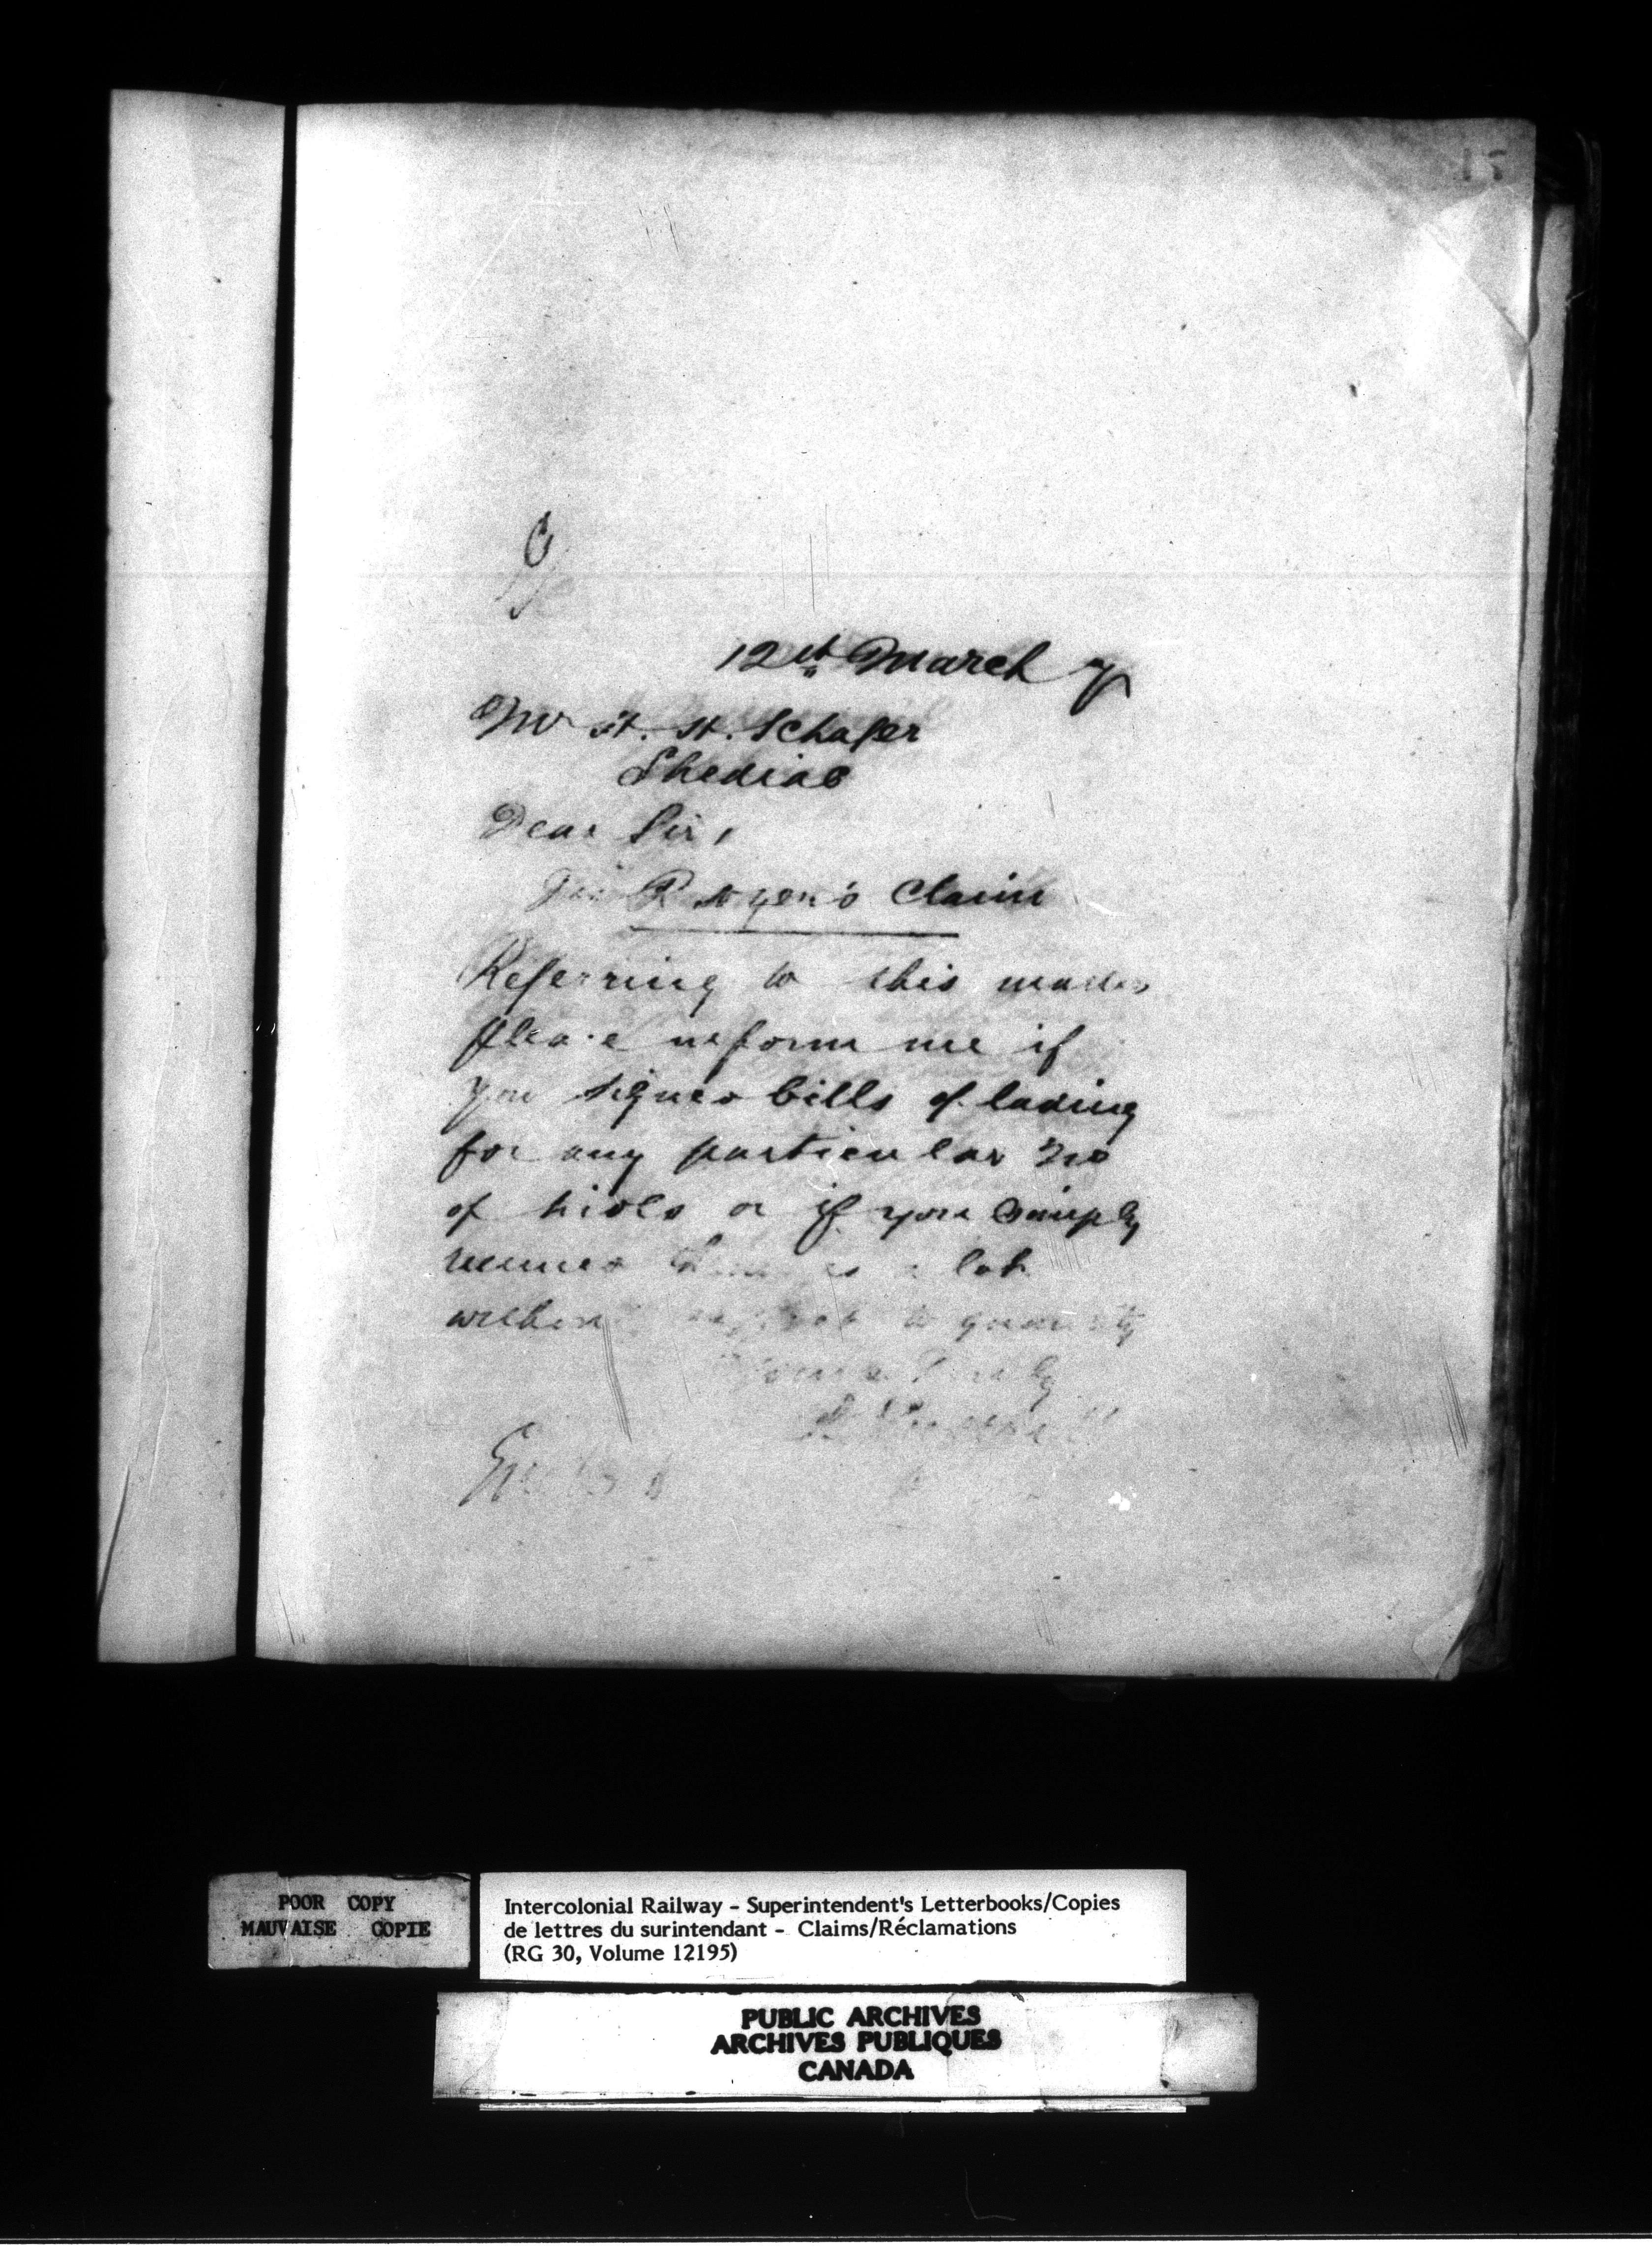 15
12th March 7
Mr H. H. Schafer
Shediac
Dear Sir,
Claim
Referring to this matter
please inform me if
you signed bills of lading
for any particular No
of hides or if you simply
as a lot
without to quantity
Yours Truly
POOR COPY
MAUVAISE COPIE
Intercolonial Railway - Superintendent's Letterbooks/Copies
de lettres du surintendant - Claims/Réclamations
(RG 30, Volume 12195)
PUBLIC ARCHIVES
ARCHIVES PUBLIQUES
CANADA